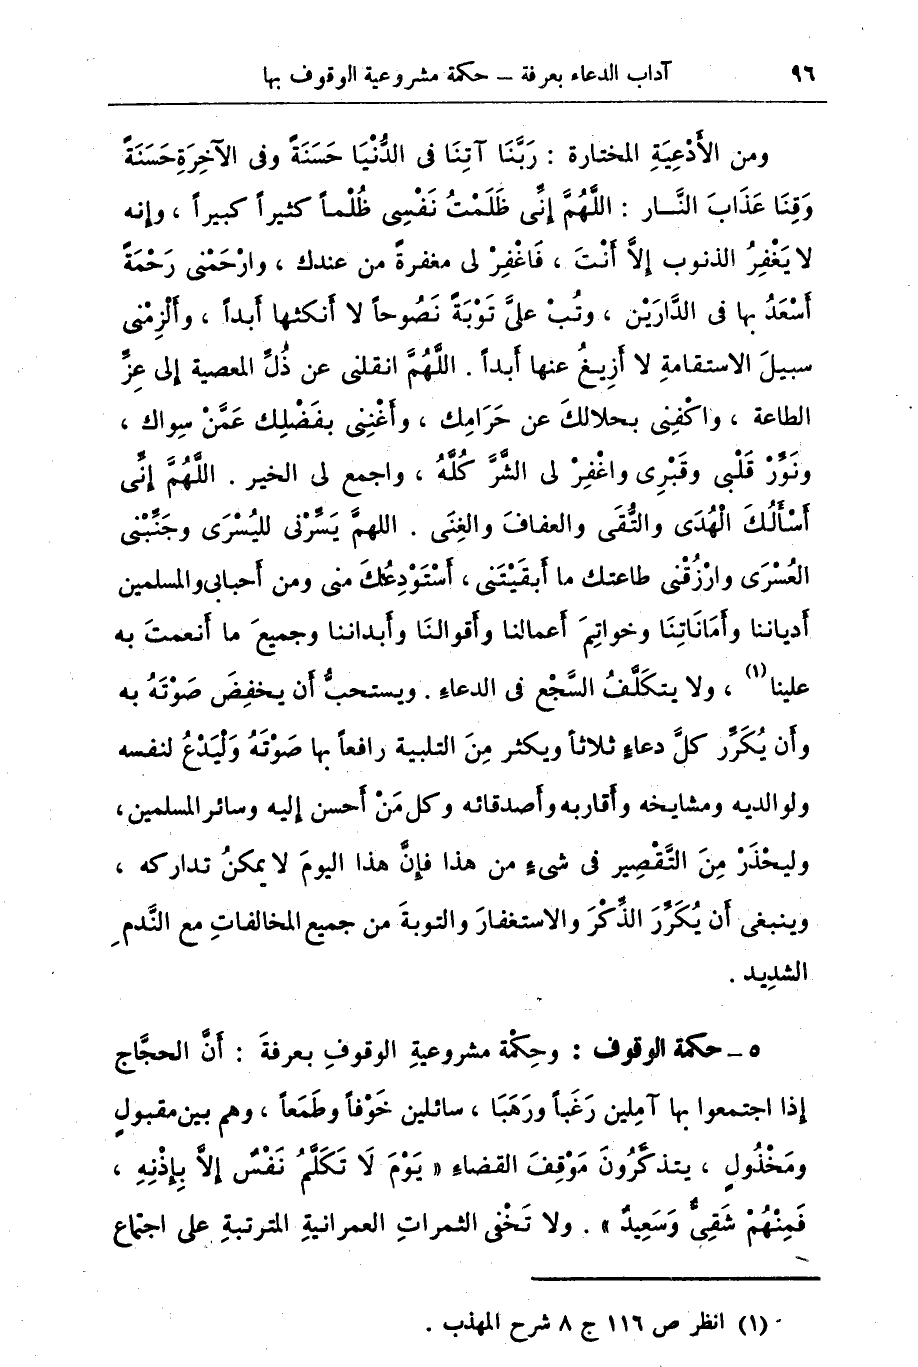 ٩٦ آداب الدعاء بعرفة – حكمة مشروعية الوقوف بها
ومن الأَدْعِيَةِ المختارة : رَبَّنَا آتِنَا فى الدُّنْيَا حَسَنَةً وفى الآخِرَةِ حَسَنَةً
وَقِنَا عَذَابَ النَّـار : اللَّهُمَّ إِنِّى ظَلَمْتُ نَفْسِى ظُلْماً كثيراً كبيراً ، وإنه
لا يَغْفِرُ الذنوب إِلاَّ أَنْتَ ، فَاغْفِرْ لى مغفرةً من عندك ، وارْحَمْنى رَحْمَةً
أَسْعَدُ بها فى الدَّارَيْن ، وتُبْ علىَّ تَوْبَةً نَصُوحاً لا أَنكثها أَبداً ، وأَلْزِمْنى
سبيلَ الاستقامةِ لا أَزِيغُ عنها أَبداً . اللَّهُمَّ انقلنى عن ذُلِّ المعصية إلى عِزِّ
الطاعة ، واكْفِنِى بحلالكَ عن حَرَامِك ، وأَغْنِنِى بفَضْلِك عَمَّنْ سِواك ،
ونَوِّرْ قَلْبى وقَبْرِى واغْفِرْ لى الشَّرَّ كُلَّهُ ، واجمع لى الخير . اللَّهُمَّ إِنِّى
أَسْأَلُكَ الْهُدَى والتُّقَى والعفافَ والغِنَى . اللهمَّ يَسِّرْنى لليُسْرَى وجَنِّبْنى
العُسْرَى وارْزُقْنى طاعتك ما أَبقَيْتَنى ، أَسْتَوْدِعُكَ منى ومن أَحبابى والمسلمين
أَدياننا وأَمَانَاتِنَا وخواتِمَ أَعمالنا وأَقوالنَا وأَبداننا وجميعَ ما أَنعمتَ به
علينا(١) ، ولا يتكَلَّفُ السَّجْع فى الدعاءِ . ويستحبُّ أَن يخفِضَ صَوْتَهُ به
وأَن يُكَرِّر كلَّ دعاءٍ ثلاثاً ويكثر مِنَ التلبية رافعاً بها صَوْتَهُ وَلْيَدْعُ لنفسه
ولوالديه ومشايخه وأَقاربه وأَصدقائه وكل مَنْ أَحسن إليه وسائر المسلمين ،
وليحْذَرْ مِنَ التَّقْصِير فى شىءٍ من هذا فإِنَّ هذا اليومَ لا يمكنُ تداركه ،
وينبغى أَن يُكَرِّرَ الذِّكْرَ والاستغفارَ والتوبةَ من جميع المخالفاتِ مع النَّدمِ
الشديد .
٥ – حكمة الوقوف : وحِكْمة مشروعيةِ الوقوفِ بعرفةَ : أَنَّ الحجَّاج
إذا اجتمعوا بها آمِلين رَغَباً ورَهَبَا ، سائلين خَوْفاً وطَمَعاً ، وهم بين مقبولٍ
ومَخْذُولٍ ، يتذكَّرُونَ مَوْقِفَ القضاءِ « يَوْمَ لَا تَكَلَّمُ نَفْسٌ إِلاَّ بِإِذْنِهِ ،
فَمِنْهُمْ شَقِىٌّ وَسَعِيدٌ » . ولا تَخْفى الثمراتِ العمرانيةِ المترتبةِ على اجتماع
(١) انظر ص ١١٦ ج ٨ شرح المهذب .